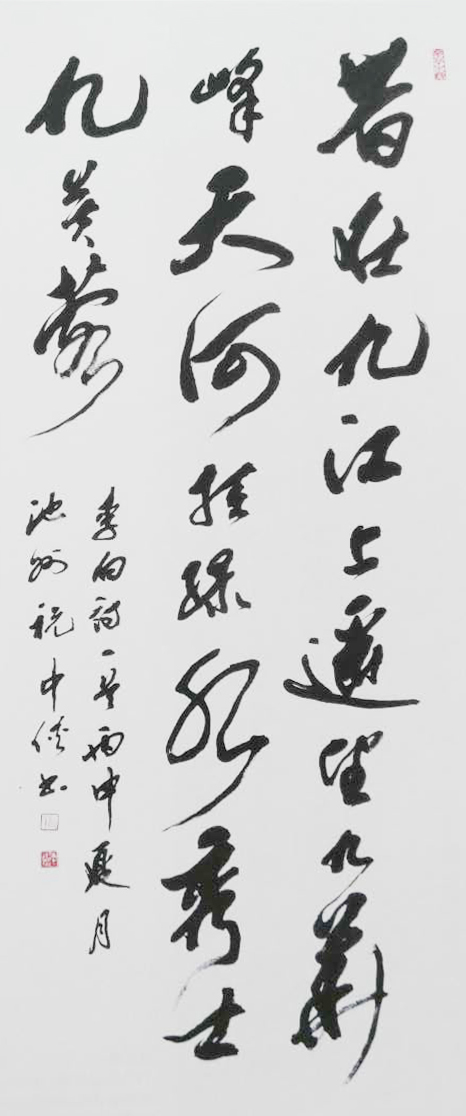 昔在九江上遙望九華
峰天河挂綠水秀出
九芙蓉
李白詩一首丙申夏月
池州祝中书